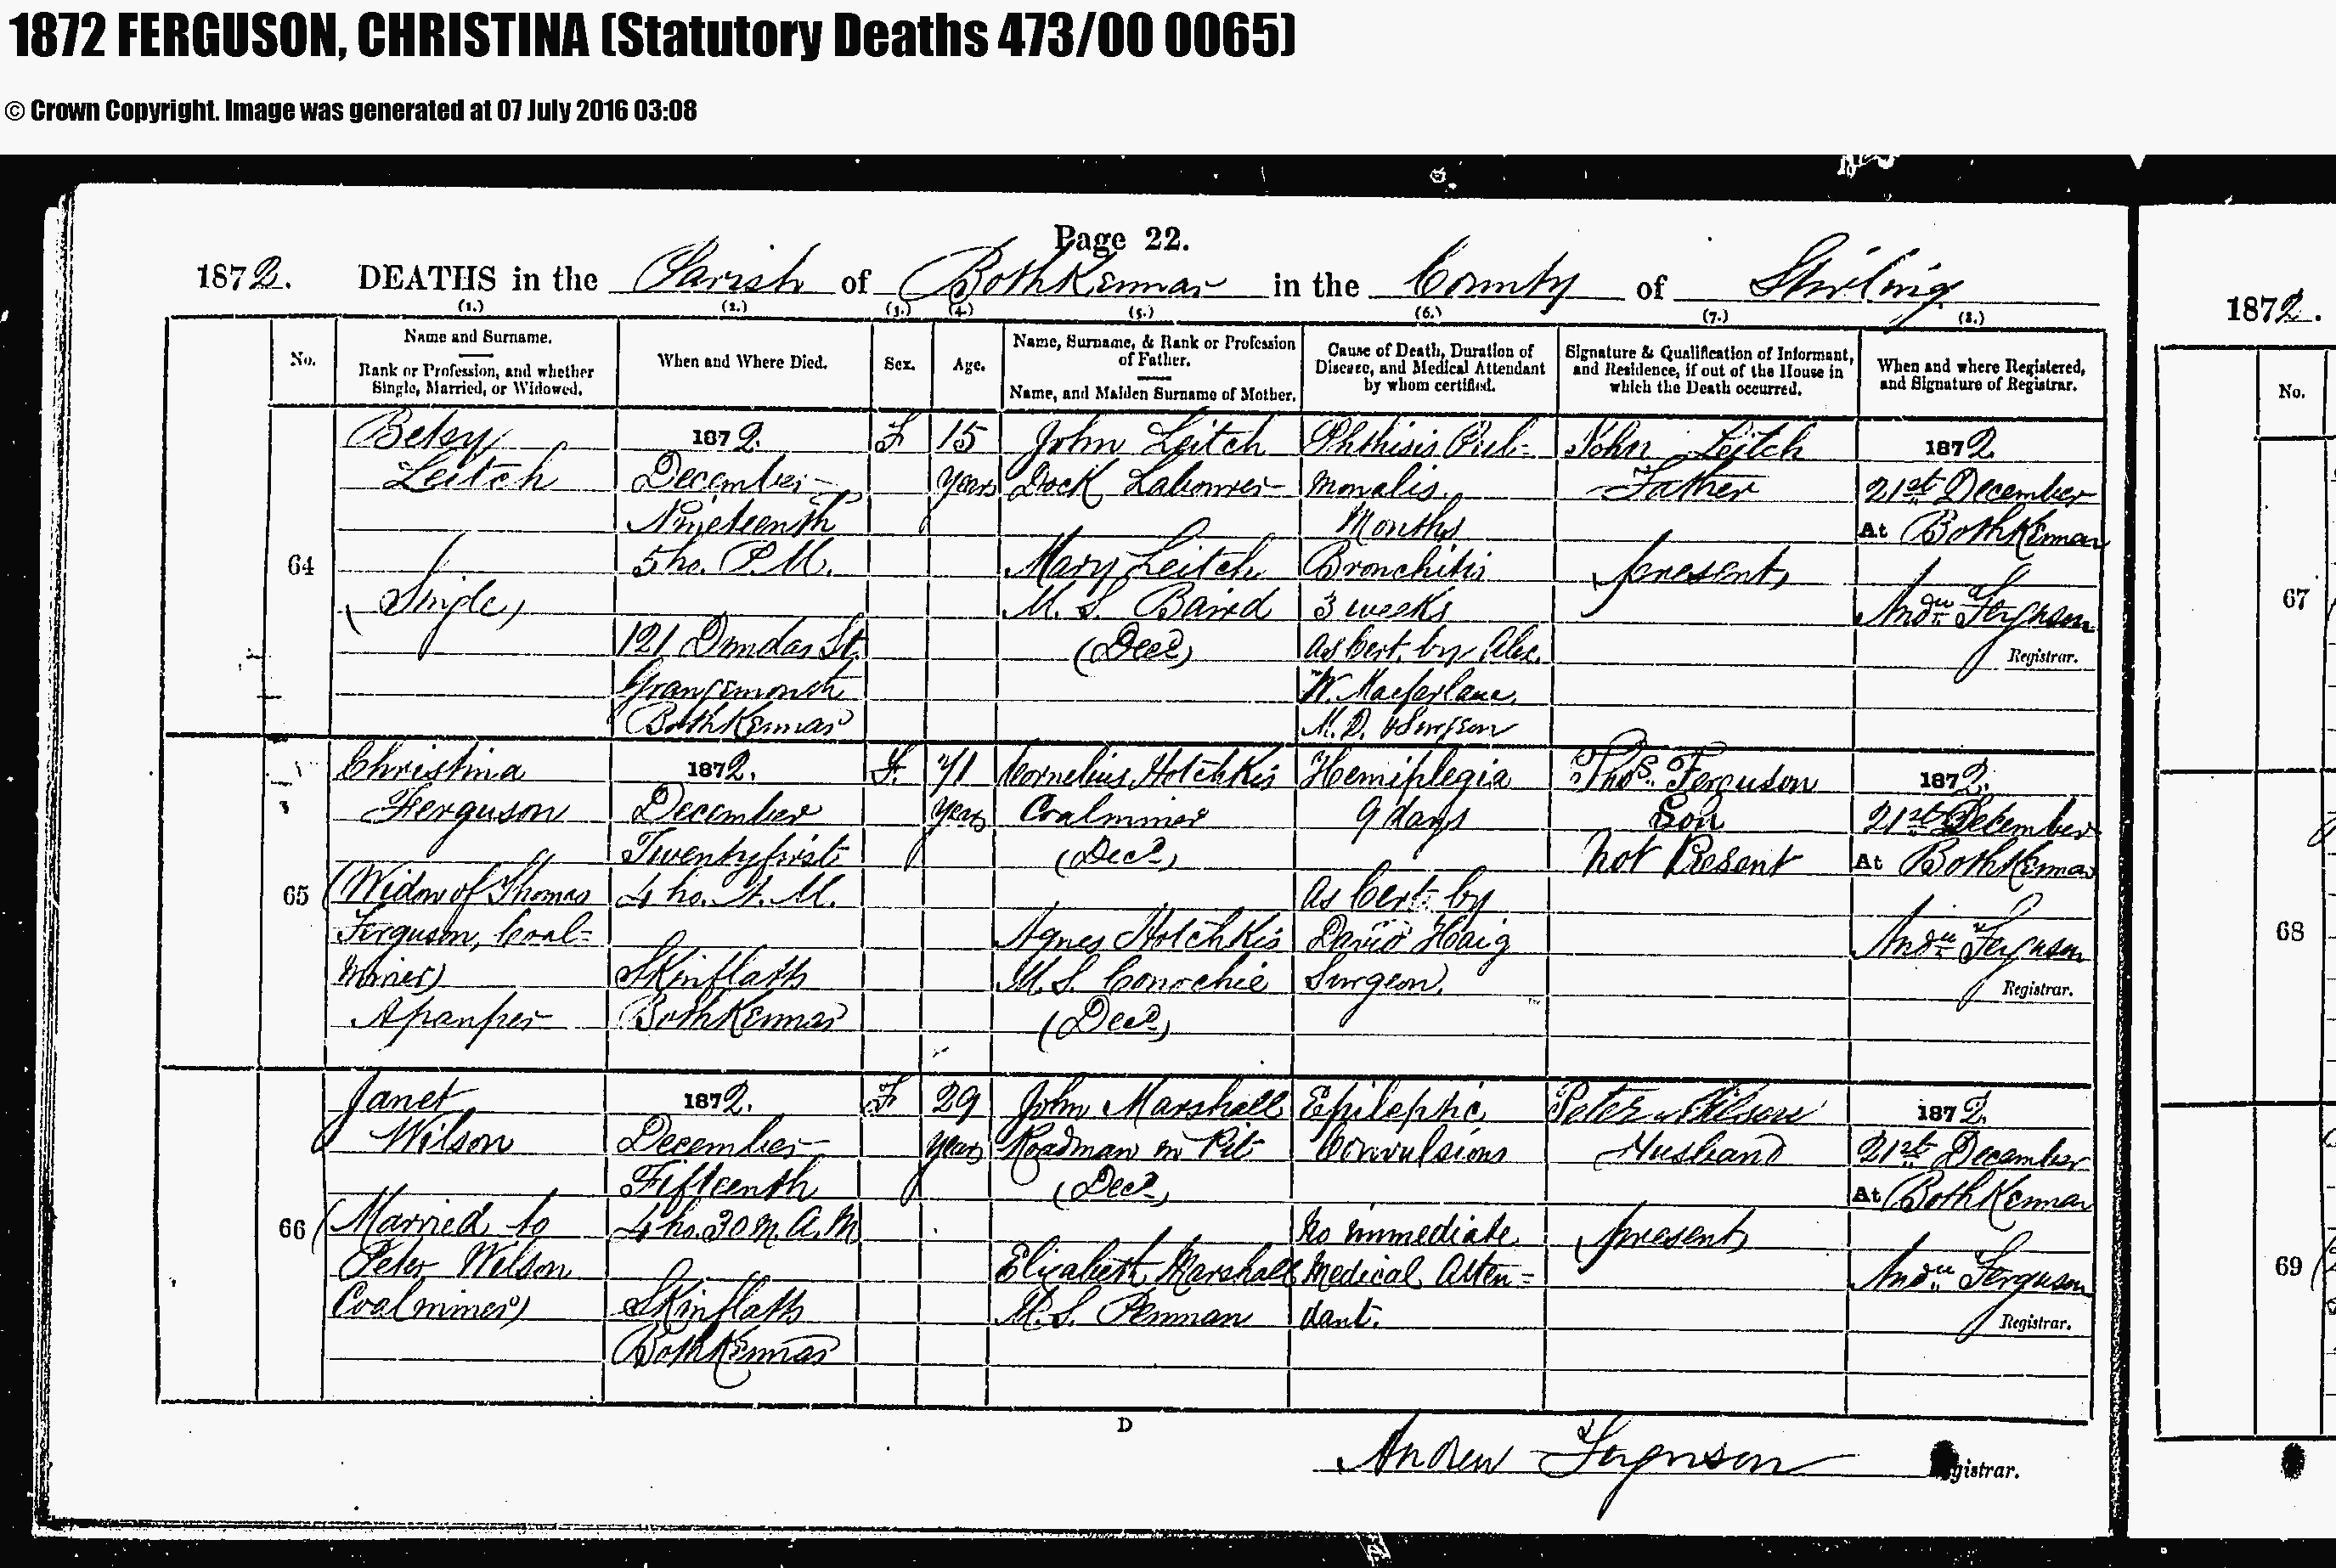 1872 FERGUSON, CHRISTINA (Statutory Deaths 473/00 0065)
© Crown Copyright. Image was generated at 07 July 2016 03:08
Page 22.
1872. DEATHS in the Parish of Bothkennar in the County of Stirling
(1.) (2.) (3.) (4.) (5.) (6.) (7.) (8.)
No.
Name and Surname.
Rank or Profession, and whether
Single, Married, or Widowed.
When and Where Died.
Sex.
Age.
Name, Surname, & Rank or Profession
of Father.
Name, and Maiden Surname of Mother.
Cause of Death, Duration of
Disease, and Medical Attendant
by whom certified.
Signature & Qualification of Informant,
and Residence, if out of the House in
which the Death occurred.
When and where Registered,
and Signature of Registrar.
64
Betsy
Leitch
(Single)
1872.
December
Nineteenth
5 ho. P.M.
121 Dundas St.
Grangemouth
Bothkennar
F
15
years
John Leitch
Dock Labourer
Mary Leitch
M.S. Baird
(Decd)
Phthisis Pul-
monalis.
Months
Bronchitis
3 weeks
as Cert. by Alex.
W. Macfarlane,
M.D. & Surgeon
John Leitch
Father
(present)
1872.
21st December
At Bothkennar
Andw Ferguson
Registrar.
65
Christina
Ferguson
(Widow of Thomas
Ferguson, Coal=
miner)
A pauper
1872.
December
Twentyfirst
4 ho. A.M.
Skinflats
Bothkennar
F.
71
years
Cornelius Hotchkis
Coalminer
(Decd)
Agnes Hotchkis
M.S. Conochie
(Decd)
Hemiplegia
9 days
as Cert. by
David Haig
Surgeon.
Thos. Ferguson
Son
Not Present
1872.
21st December
At Bothkennar
Andw Ferguson
Registrar.
66
Janet
Wilson
(Married to
Peter Wilson
Coalminer)
1872.
December
Fifteenth
4 ho. 30 m. A.M
Skinflats
Bothkennar
F
29
years
John Marshall
Roadman in Pit
(Decd)
Elizabeth Marshall
M.S. Penman
Epileptic
Convulsions
No immediate
Medical Atten=
dant.
Peter Wilson
Husband
(present)
1872.
21st December
At Bothkennar
Andw Ferguson
Registrar.
D
Andrew Ferguson
gistrar.
1872.
No.
67
68
69